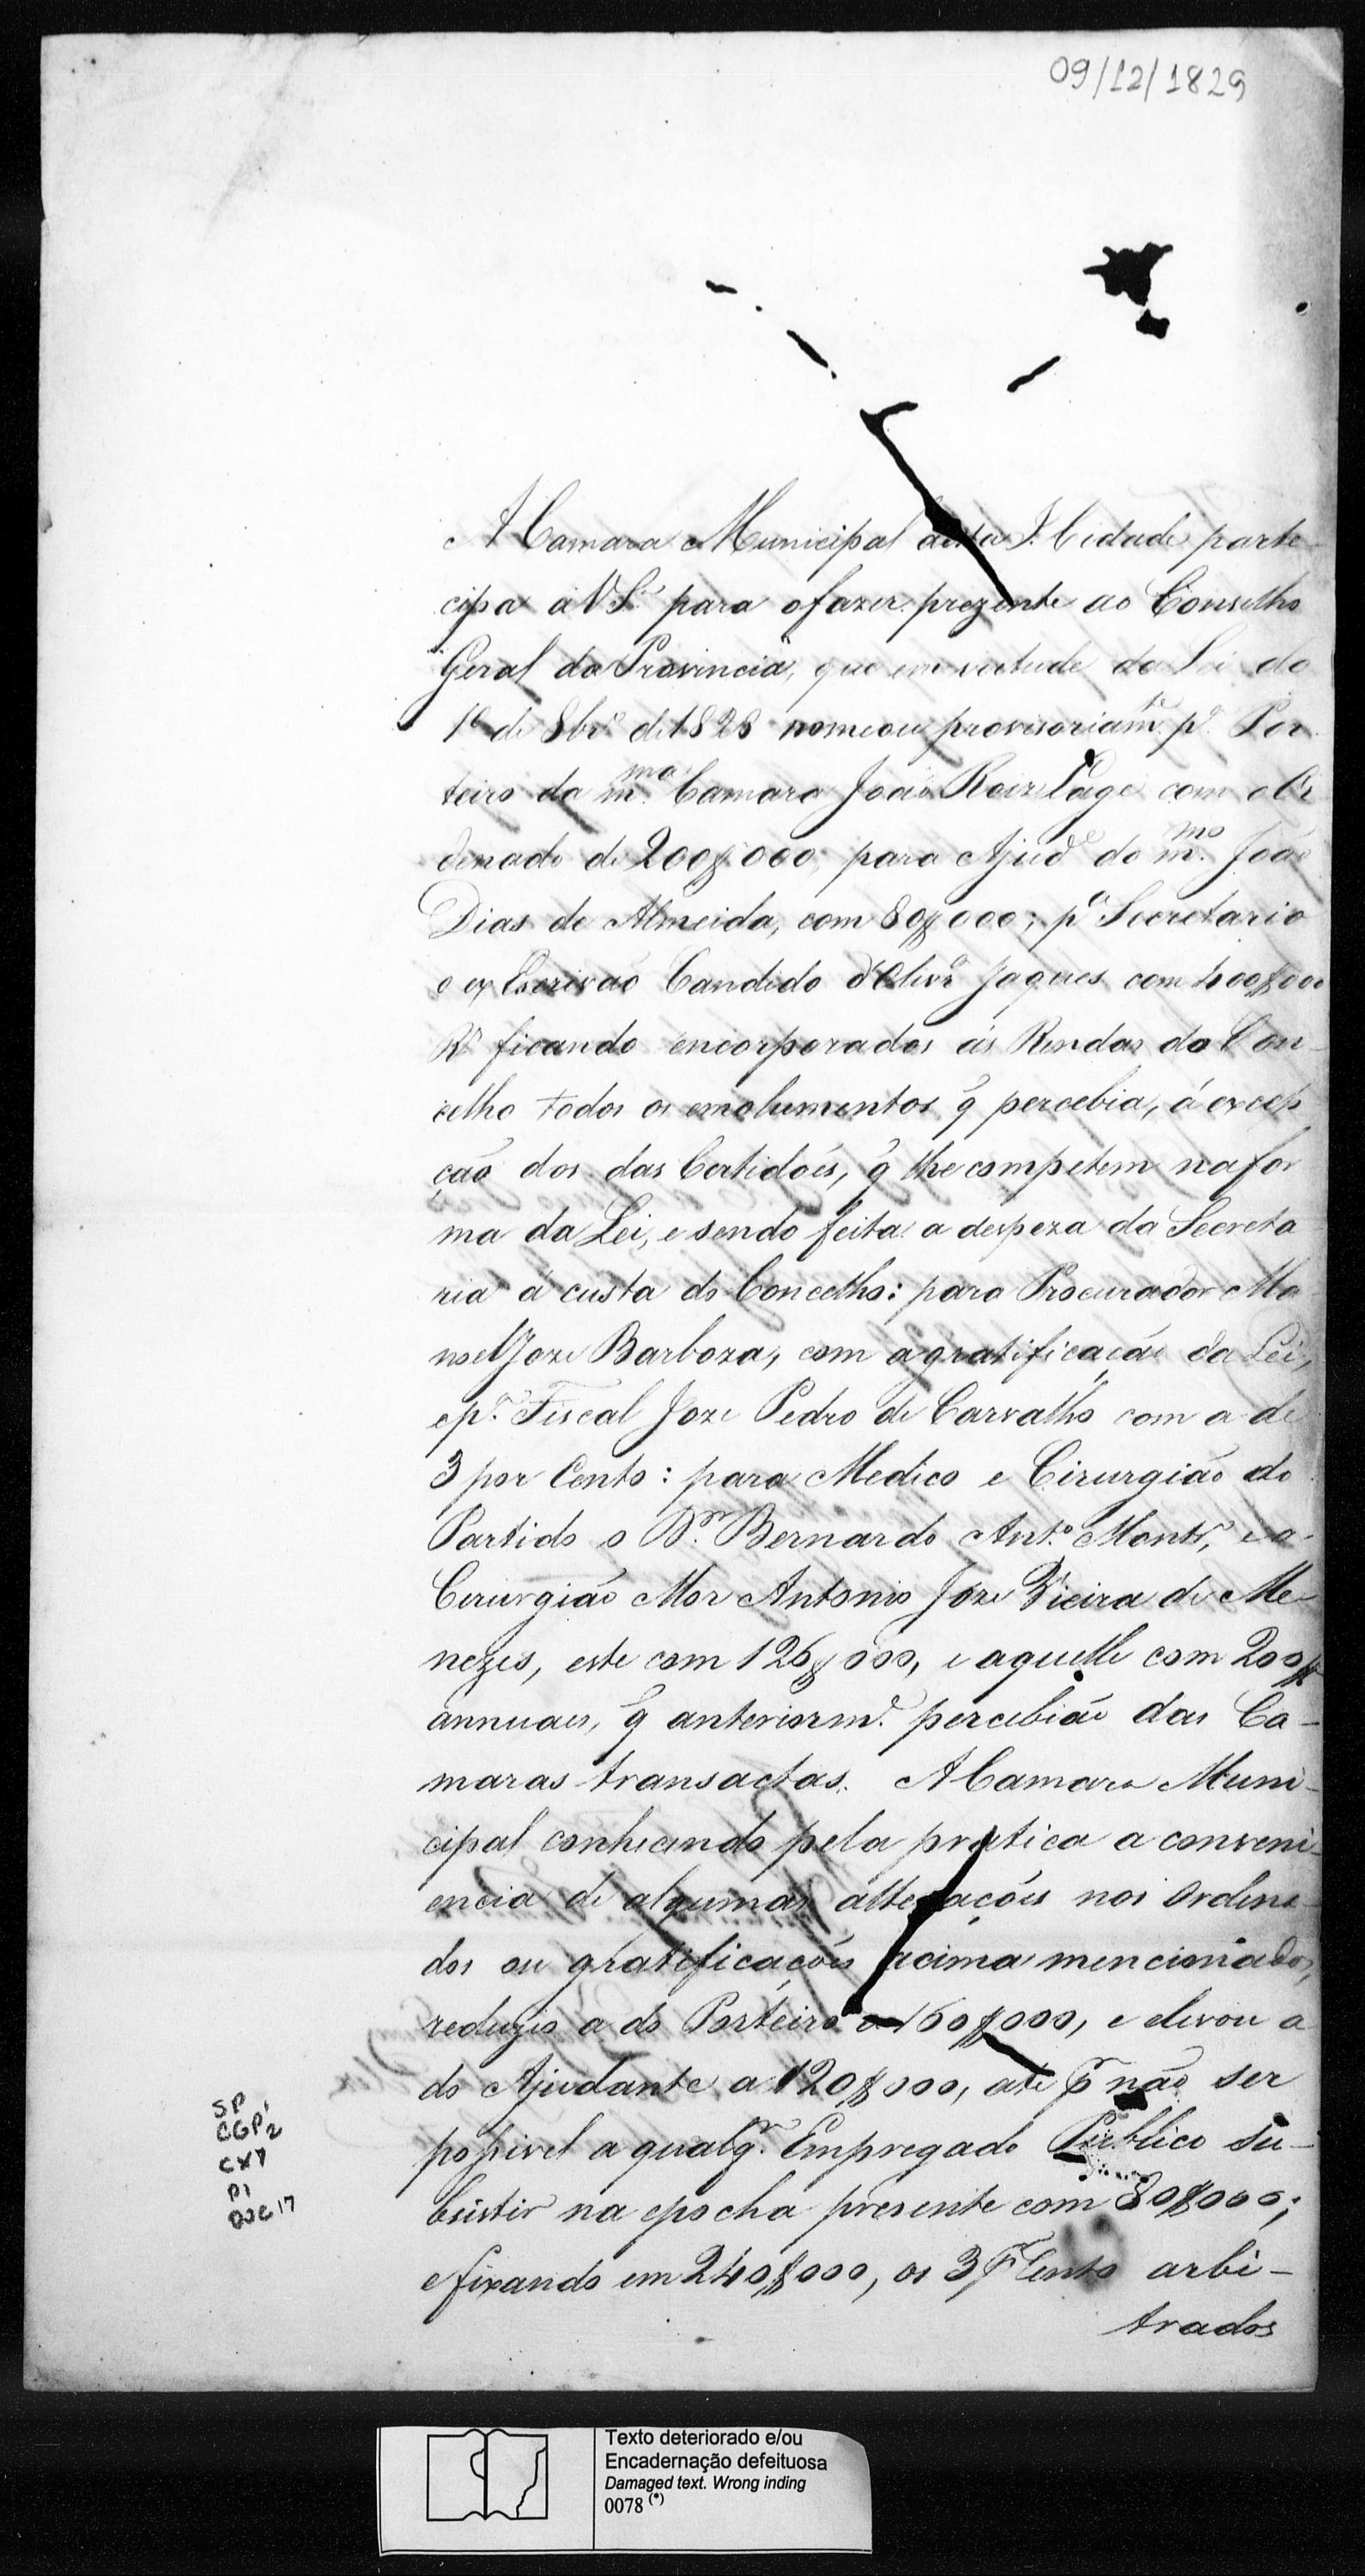 09/12/1829
A Camara Municipal desta I. Cidade parte
cipa a V S.ª para o fazer prezente ao Conselho
Geral da Provincia, que em virtude da Lei do
1º de 8brº de 1828 nomeou provisoriam.te p.ª Por
teiro da m.ma Camara João Roiz Lage com o Or
denado de 200$000; para Ajud.e do m.mo João
Dias de Almeida, com 80$000; p.ª Secretario
o ex Escrivão Candido d'Olivr.ª Jaques com 400$000
R.s ficando encorporados ás Rendas do Con-
celho todos os emolumentos q̃ percebia, á excep
ção dos das Certidoẽs, q̃ lhe competem na for
ma da Lei, e sendo feita a despeza da Secreta
ria á custa do Concelho: para Procurador Ma
noel Joze Barboza, com a gratificação da Lei,
e p.ª Fiscal Joze Pedro de Carvalho com a de
3 por Cento: para Medico e Cirurgião do
Partido o D.or Bernardo Ant.º Montr.º, e o
Cirurgião Mor Antonio Joze Vieira de Me-
nezes, este com 126$000, e aquelle com 200$
annuaes, q̃ anteriorm.e percebião das Ca-
maras transactas. A Camara Muni-
cipal conhecendo pela pratica a conveni-
encia de algumas alteraçoẽs nos Ordena-
dos ou gratificaçoẽs acima mencionados,
reduzio a do Porteiro a 160$000, e elevou a
do Ajudante a 120$000, até pr não ser
possivel a qualq.r Empregado Publico su-
bsistir na epocha presente com 80$000;
e fixando em 240$000, os 3 pr Cento arbi-
trados
SP
CGP1
CX7
P1
DOC 17
Texto deteriorado e/ou
Encadernação defeituosa
Damaged text. Wrong inding
0078 (*)